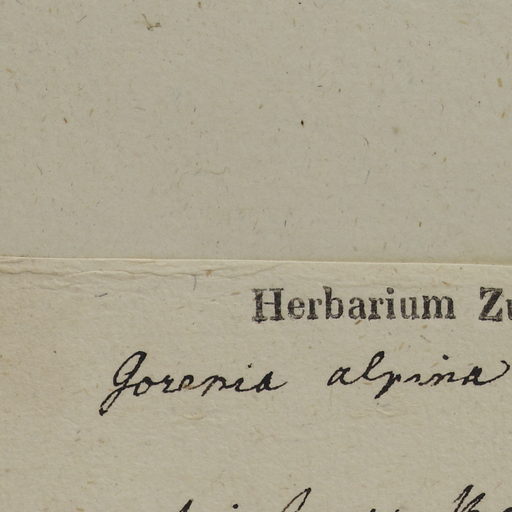 Herbarium Zu
Gorenia alpina